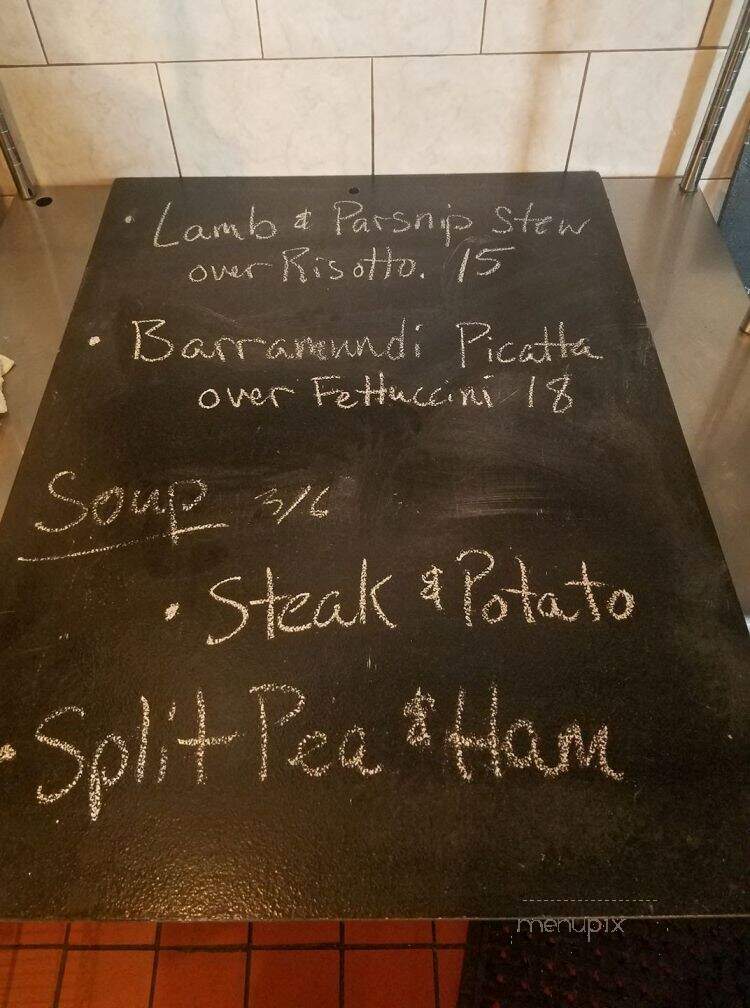 • Lamb & Parsnip Stew
over Risotto. 15
• Barramundi Picatta
over Fettuccini 18
Soup 3/6
• Steak & Potato
• Split Pea & Ham
menupix